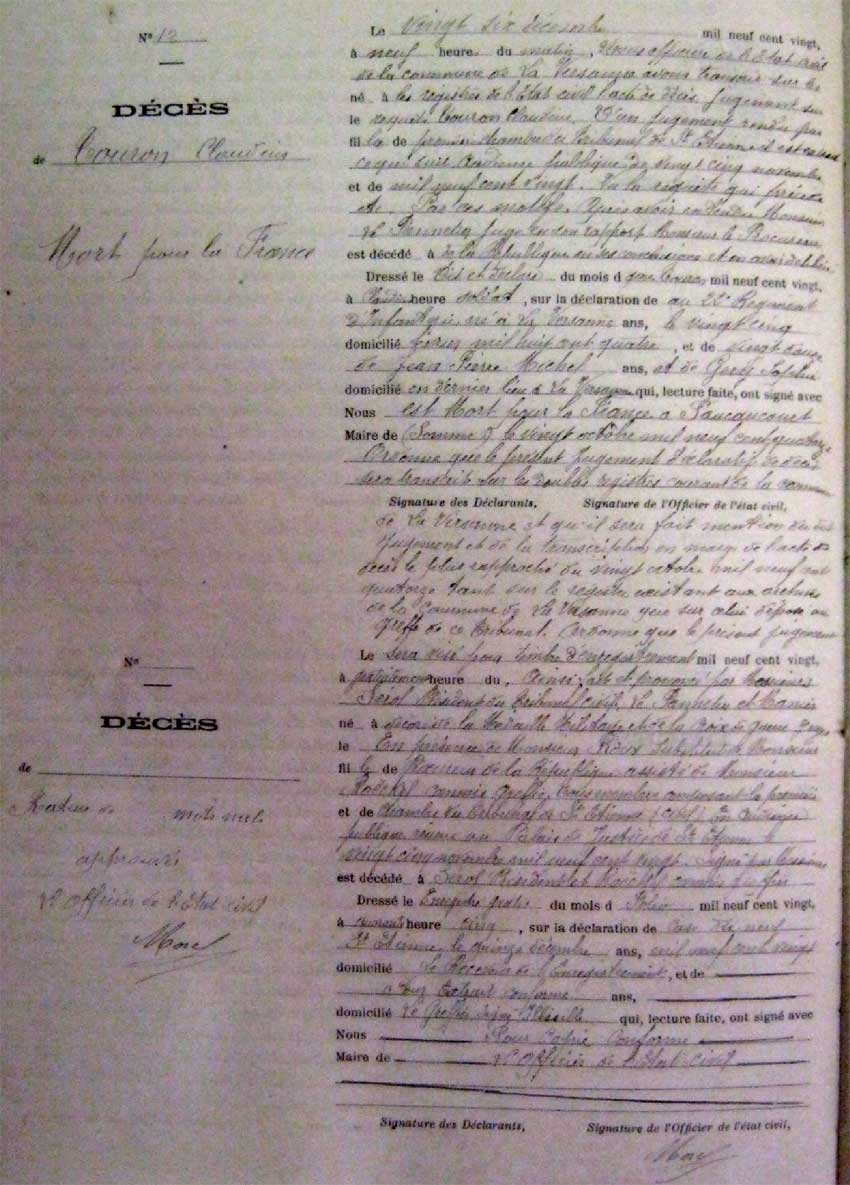 N° 12
DÉCÈS
de Couron Claudius
Mort pour la France
Le vingt six décembre mil neuf cent vingt,
à neuf heure du matin, Nous officier de l'Etat civil
de la commune de La Versanne avons transcrit sur les
né à les registres de l'Etat civil l'acte de décès. Jugement sur
le requête Couron Claudius. D'un jugement rendu par
fil la de première chambre du tribunal de St Etienne est extrait
ce qui suit Audience publique du vingt cinq novembre
et de mil neuf cent vingt. Vu la requête qui précède
et Par ces motifs. Après avoir entendu Monsieur
juge en son rapport Monsieur le Procureur
est décédé à de la République en ses conclusions et en avoir délibéré
Dressé le Dit et déclare du mois d que Couron mil neuf cent vingt,
à Claudius heure soldat, sur la déclaration de au 22e Régiment
d'Infanterie, né à La Versanne ans, le vingt cinq
domicilié février mil huit cent quatre, et de vingt douze
de Jean Pierre Michel ans, et de Sophie
domicilié en dernier lieu à La Versanne qui, lecture faite, ont signé avec
Nous est Mort pour la France à
Maire de (Somme) le vingt octobre mil neuf cent quatorze
Ordonne que le présent jugement déclaratif de décès
sera transcrit sur les doubles registres courant de la commune
Signature des Déclarants, Signature de l'Officier de l'état civil,
de La Versanne et qu'il sera fait mention du dit
jugement et de la transcription en marge de l'acte de
décès le plus rapproché du vingt octobre mil neuf cent
quatorze tant sur le registre existant aux archives
de la Commune de La Versanne que sur celui déposé au
greffe de ce tribunal. Ordonne que le présent jugement
N°
DÉCÈS
de
Rature de mots nuls
approuvés
L'officier de l'Etat civil
Morel
Le sera visé pour timbre et enregistrement mil neuf cent vingt,
à gratuitement heure du, Ainsi fait et prononcé par Messieurs
Président du tribunal civil, et
né à décoré de la Médaille Militaire et de la Croix de guerre juges
le En présence de Monsieur Roux Substitut de Monsieur
fil le de Procureur de la République assisté de Monsieur
commis greffier, tous membres composant la première
et de chambre du tribunal de St Etienne (civil) En audience
publique tenue au Palais de Justice de St Etienne le
vingt cinq novembre mil neuf cent vingt. Signé par Messieurs
est décédé à Président et commis greffier
Dressé le Enregistré quatre du mois d Folio mil neuf cent vingt,
à quarante heure cinq, sur la déclaration de case dix neuf
St Etienne, le quinze décembre ans, mil neuf cent vingt
domicilié Le Receveur de l'Enregistrement, et de
Pour Extrait conforme ans,
domicilié Le Greffier signé Illisible qui, lecture faite, ont signé avec
Nous Pour Copie conforme
Maire de L'officier de l'Etat civil
Signature des Déclarants, Signature de l'Officier de l'état civil,
Morel